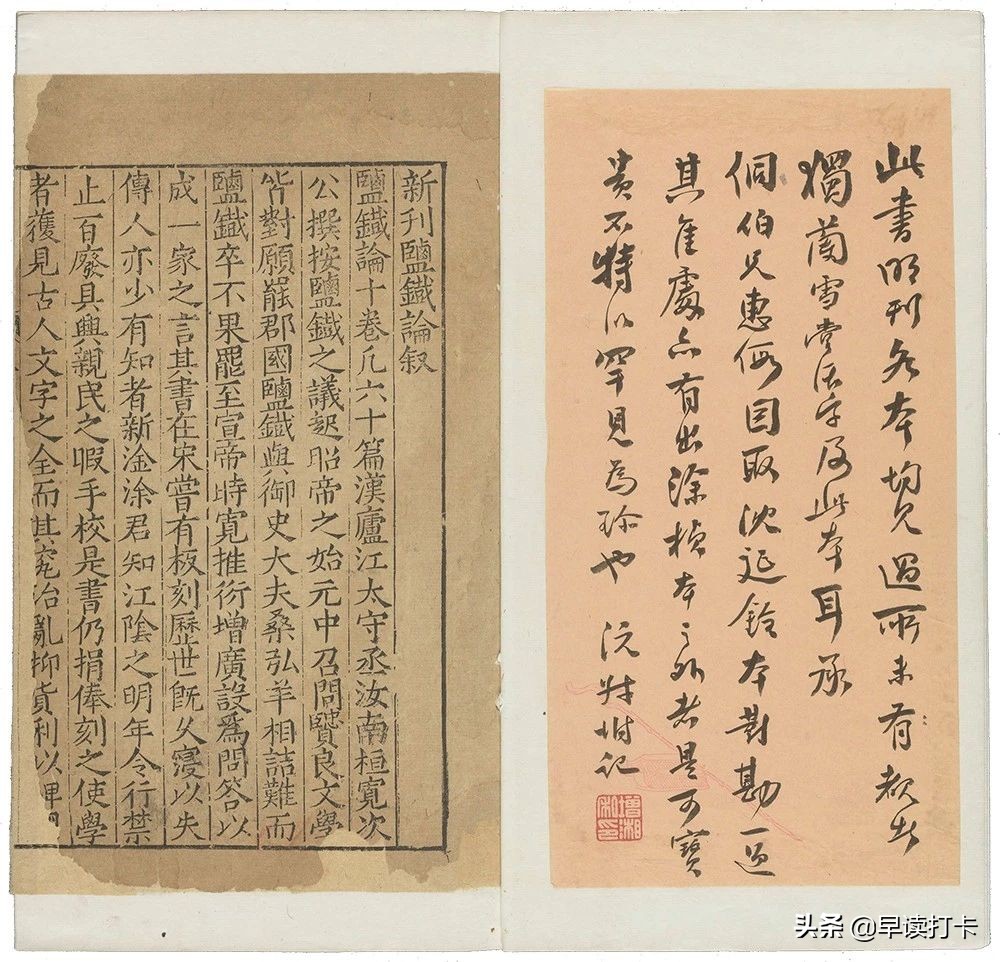 此書明刊各本均見過所未有者
獨蘭雪堂活字及此本耳承
侗伯兄惠假因取沈延銓本對勘一過
其佳處亦有出涂楨本之外者是可寶
貴不特以罕見為珍也 沅叔附記
增湘私印
新刊鹽鐵論叙
鹽鐵論十卷凡六十篇漢廬江太守丞汝南桓寬次
公撰按鹽鐵之議起昭帝之始元中召問賢良文學
皆對願罷郡國鹽鐵與御史大夫桑弘羊相詰難而
鹽鐵卒不果罷至宣帝時寬推衍增廣設爲問答以
成一家之言其書在宋嘗有板刻歷世旣久寖以失
傳人亦少有知者新淦涂君知江陰之明年令行禁
止百廢具興親民之暇手校是書仍捐俸刻之使學
者復見古人文字之全而其究治亂抑貨利以裨
头条 @早读打卡